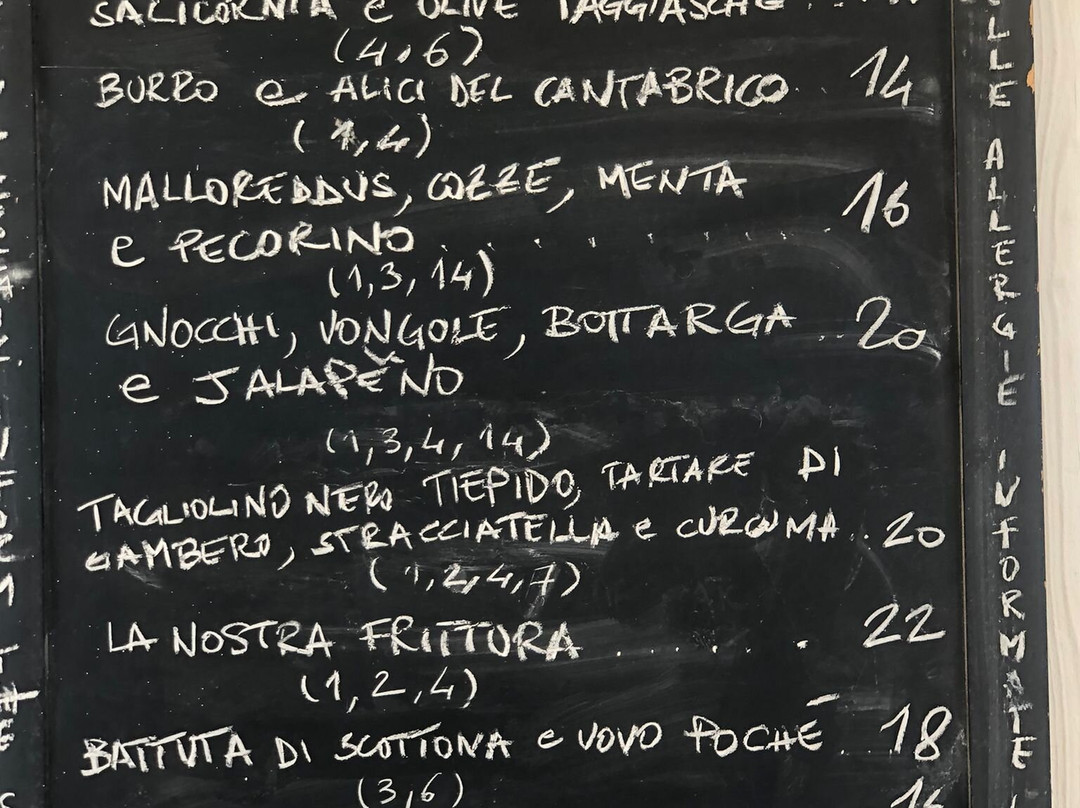 SALICORNIA e OLIVE TAGGIASCHE . . .
(4,6)
BURRO e ALICI DEL CANTABRICO . 14
(1,4)
MALLOREDDUS, COZZE, MENTA 16
e PECORINO . . . . . . . . .
(1,3,14)
GNOCCHI, VONGOLE, BOTTARGA .. 20
e JALAPEÑO
(1,3,4,14)
TAGLIOLINO NERO TIEPIDO, TARTARE DI
GAMBERO, STRACCIATELLA e CURCUMA .. 20
(1,2,4,7)
LA NOSTRA FRITTURA . . . . . . . 22
(1,2,4)
BATTUTA DI SCOTTONA e UOVO POCHÉ . 18
(3,6)
16
ELLE ALLERGIE INFORMATE